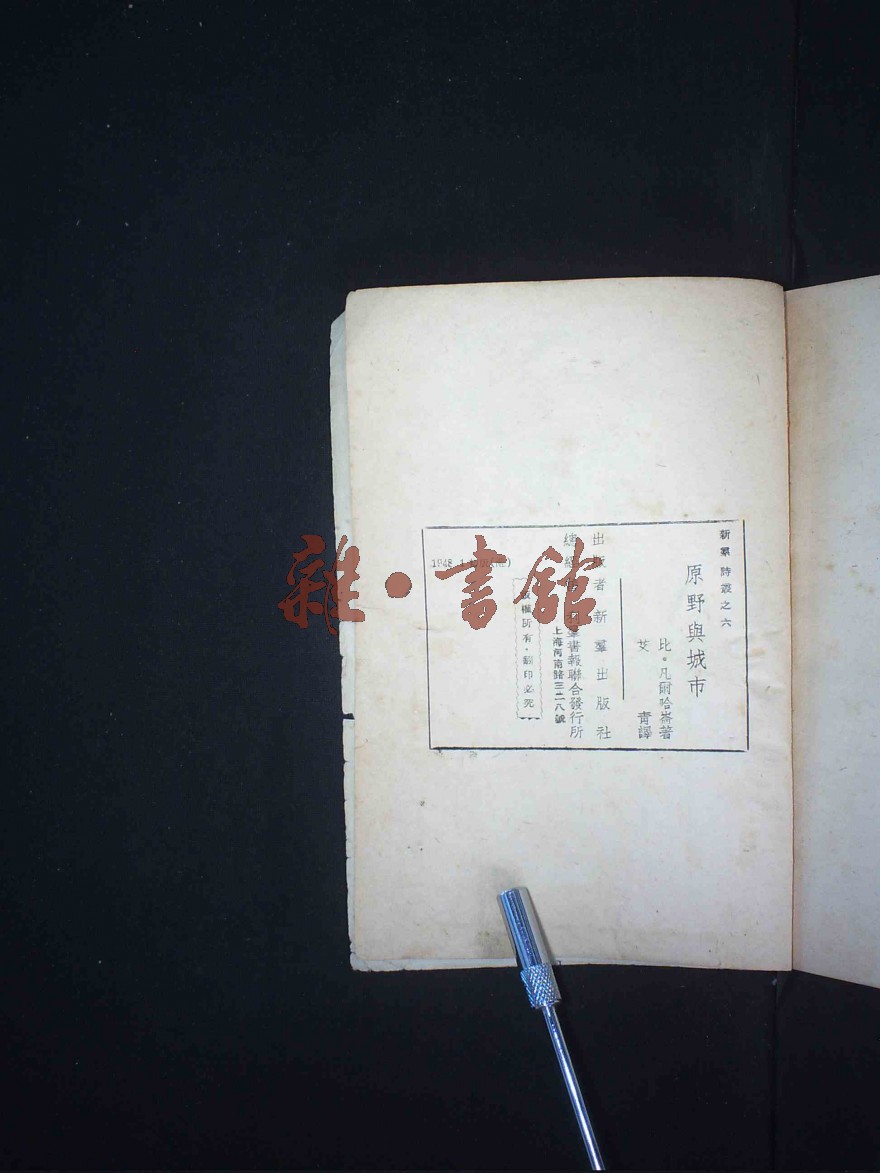 新羣詩叢之六
原野與城市
比·凡爾哈崙著
艾青譯
出版者新羣出版社
書報聯合發行所
上海河南路三二八號
版權所有·翻印必究
1948.1
雜·書館